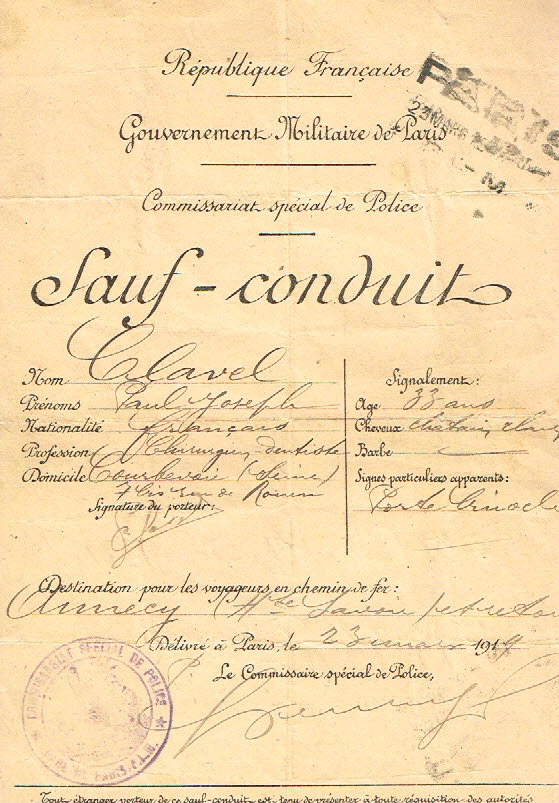 République Française
PARIS
23 MARS
Gouvernement Militaire de Paris
Commissariat spécial de Police
Sauf-conduit
Nom Clavel
Prénoms Paul Joseph
Nationalité Français
Profession Chirurgien-Dentiste
Domicile Courbevoie (Seine)
de Rouen
Signature du porteur:
Signalement:
Age 33 ans
Cheveux chatain clair
Barbe —
Signes particuliers apparents:
Porte binocle
Destination pour les voyageurs en chemin de fer:
Annecy Hte Savoie et retour
Délivré à Paris, le 23 mars 191
Le Commissaire spécial de Police,
COMMISSARIAT SPÉCIAL DE POLICE
GARE DE PARIS-P.L.M.
Tout étranger porteur de ce sauf-conduit est tenu de présenter à toute réquisition des autorités